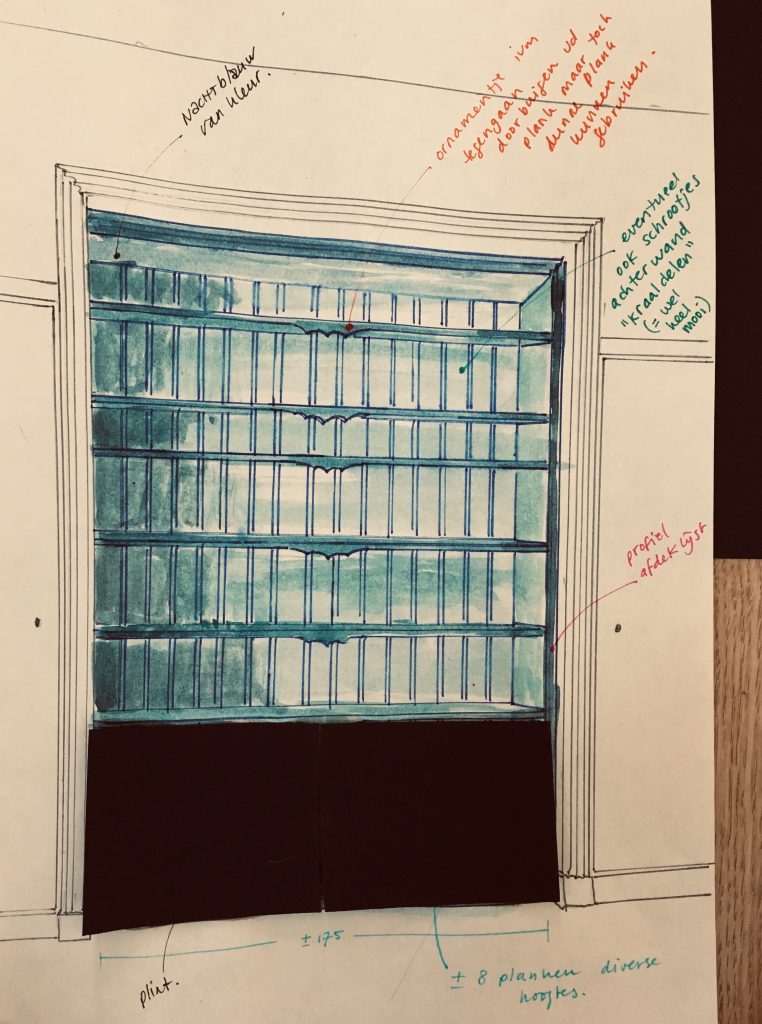 Nachtblauw
van kleur.
ornamentje ivm
tegengaan
doorbuigen vd
plank maar toch
dunne plank
kunnen
gebruiken.
eventueel
ook schrootjes
achterwand
"kraaldelen"
(= wel
heel
mooi)
profiel
afdeklijst
± 175
plint.
± 8 planken diverse
hoogtes.